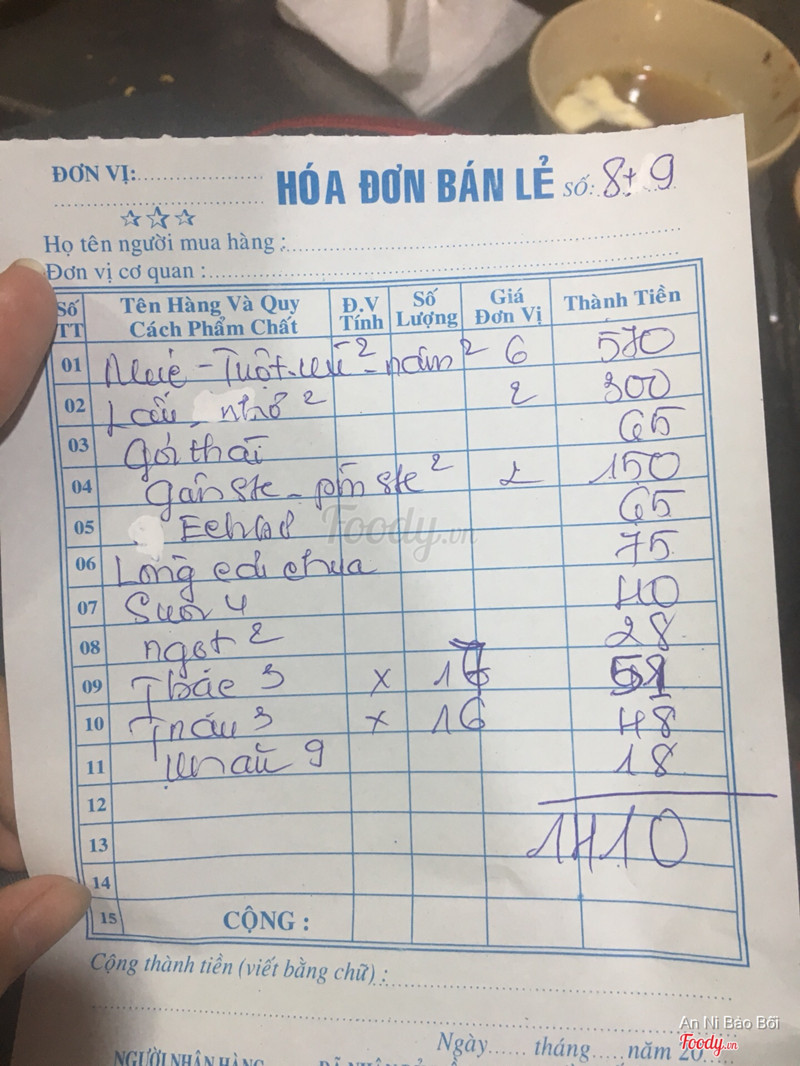 ĐƠN VỊ:
HÓA ĐƠN BÁN LẺ SỐ: 8+9
Họ tên người mua hàng :
Đơn vị cơ quan :
Số TT Tên Hàng Và Quy Cách Phẩm Chất Đ.V Tính Số Lượng Giá Đơn Vị Thành Tiền
01 nấm 2 6 570
02 Lẩu nhỏ 2 2 300
03 Gỏi thái 65
04 150
05 65
06 Lòng chua 75
07 Suối 4 40
08 ngọt 2 28
09 3 x 17 51
10 3 x 16 48
11 Khăn 9 18
12
1410
13
14
15 CỘNG :
Cộng thành tiền (viết bằng chữ) :
Ngày...... tháng..... năm 20
NGƯỜI NHẬN HÀNG
Foody.vn
An Ni Bảo Bối
Foody.vn